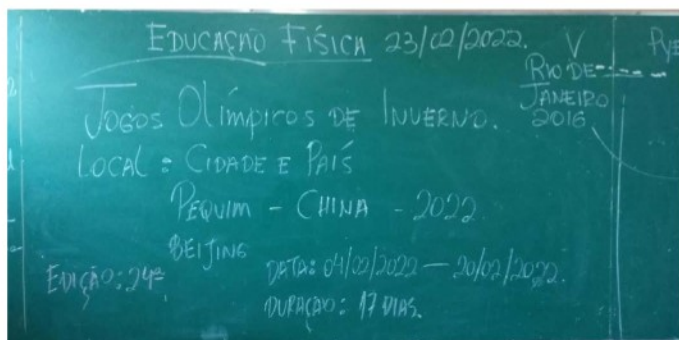 EDUCAÇÃO FÍSICA 23/02/2022.
V
RIO DE
JANEIRO
2016
JOGOS OLÍMPICOS DE INVERNO.
LOCAL: CIDADE E PAÍS
PEQUIM - CHINA - 2022
BEIJING
EDIÇÃO: 24ª
DATA: 04/02/2022 — 20/02/2022.
DURAÇÃO: 17 DIAS.